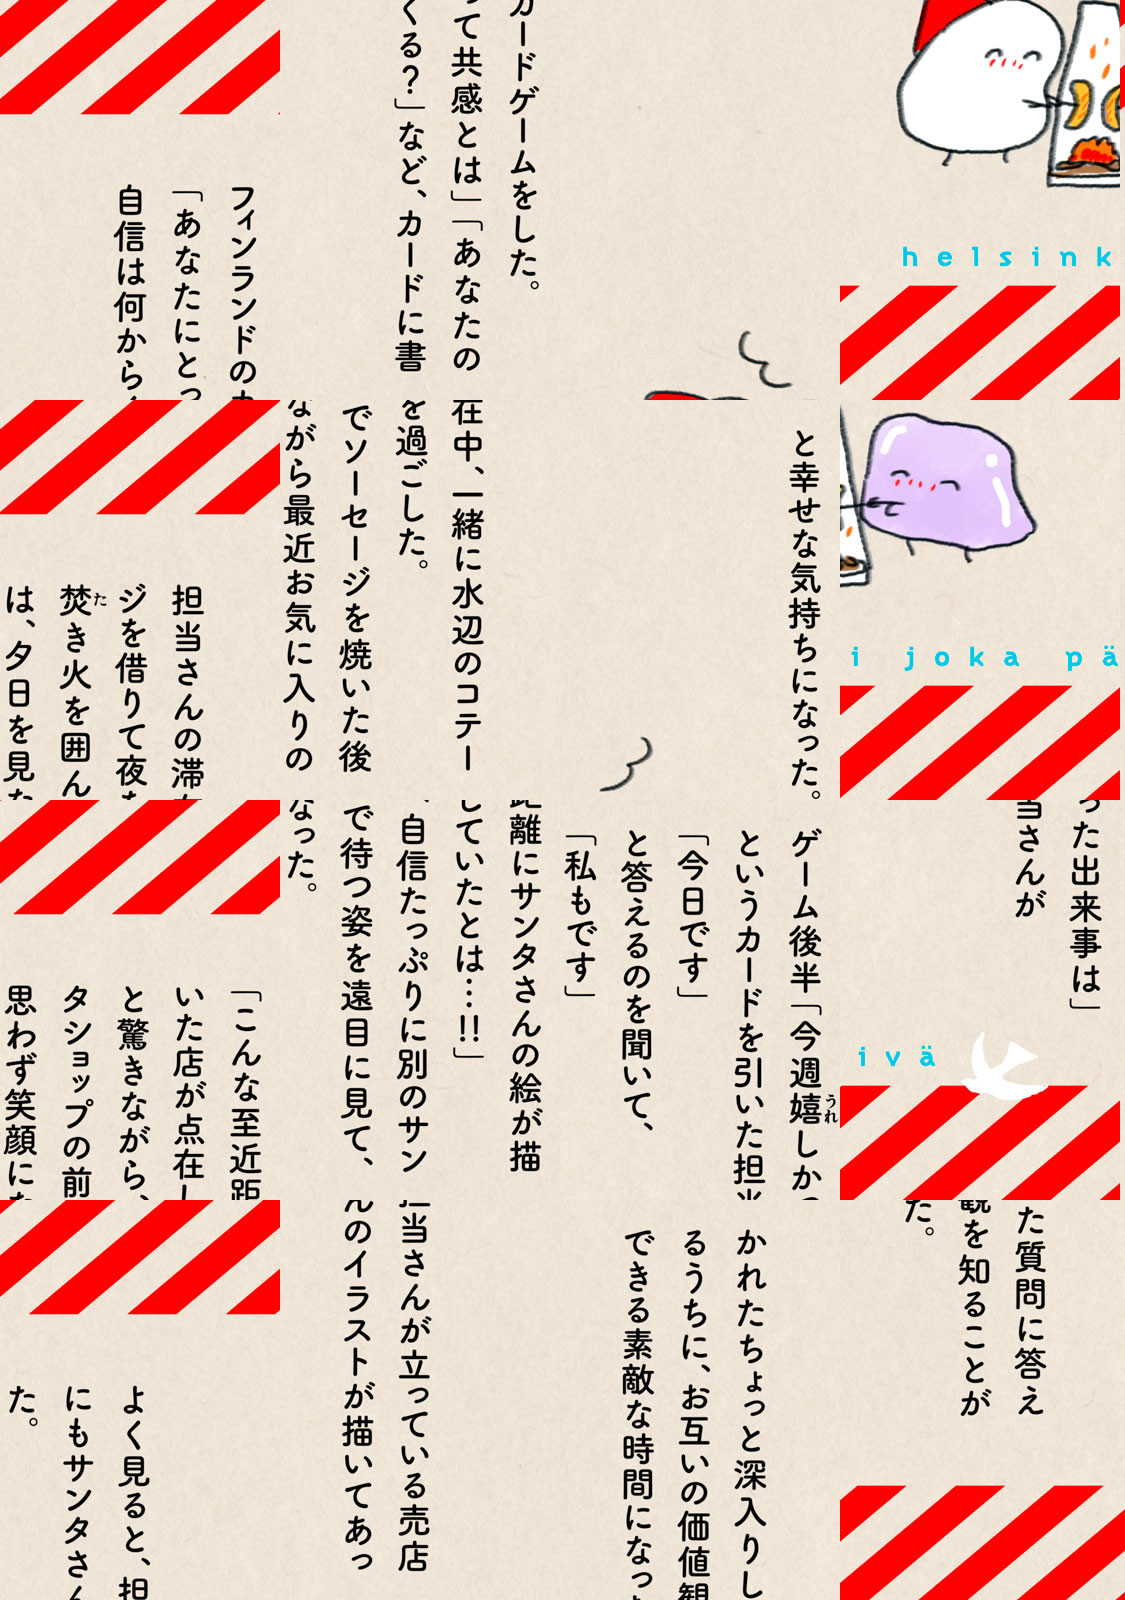 helsink
カードゲームをした。
って共感とは」「あなたの
くる？」など、カードに書
フィンランドの
「あなたにとっ
自信は何から
i joka pä
と幸せな気持ちになった。
在中、一緒に水辺のコテー
を過ごした。
でソーセージを焼いた後
ながら最近お気に入りの
担当さんの滞
ジを借りて夜
焚き火を囲ん
は、夕日を見
った出来事は」
当さんが
ivä
ゲーム後半「今週嬉しか
というカードを引いた担当
「今日です」
と答えるのを聞いて、
「私もです」
距離にサンタさんの絵が描
していたとは…!!」
自信たっぷりに別のサン
で待つ姿を遠目に見て、
なった。
「こんな至近距
いた店が点在し
と驚きながら、
タショップの前
思わず笑顔に
た質問に答え
観を知ることが
た。
かれたちょっと深入りし
るうちに、お互いの価値観
できる素敵な時間になっ
担当さんが立っている売店
んのイラストが描いてあっ
よく見ると、担
にもサンタさん
た。